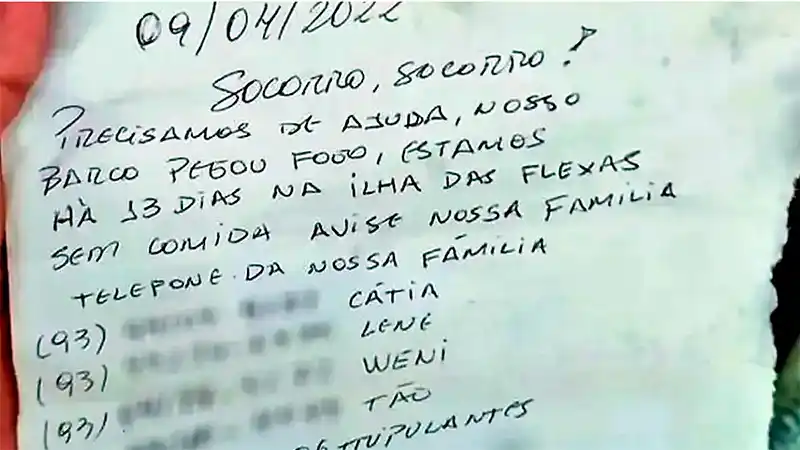 09/04/2022
SOCORRO, SOCORRO!
PRECISAMOS DE AJUDA, NOSSO
BARCO PEGOU FOGO, ESTAMOS
HÀ 13 DIAS NA ILHA DAS FLEXAS
SEM COMIDA AVISE NOSSA FAMILIA
TELEFONE DA NOSSA FAMÍLIA
(93) CÁTIA
(93) LENE
(93) WENI
TÃO
TRIPULANTES